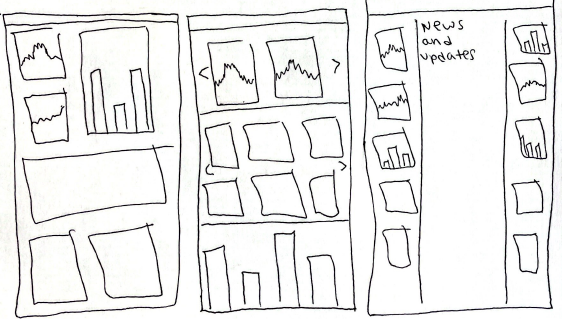 News
and
updates